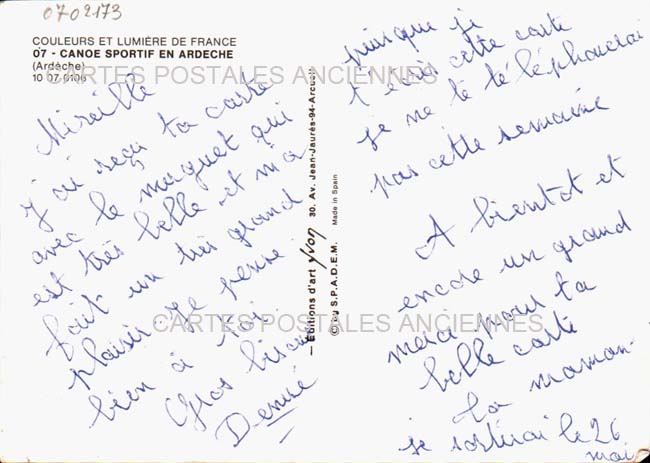 0702173
COULEURS ET LUMIÈRE DE FRANCE
07 - CANOE SPORTIF EN ARDECHE
(Ardèche)
10 07 0106
CARTES POSTALES ANCIENNES
Mireille
J'ai reçu ta carte
avec le muguet qui
est très belle et m'a
fait un très grand
plaisir. Je pense
bien à toi.
Gros bisous
Denise
CARTES POSTALES ANCIENNES
— Editions d'art yvon 30, Av. Jean-Jaurès-94-Arcueil
© by S.P.A.D.E.M. Made in Spain
puisque je
t'écris cette carte
je ne te téléphonerai
pas cette semaine
A bientôt et
encore un grand
merci pour ta
belle carte
ta maman
je sortirai le 26
mai